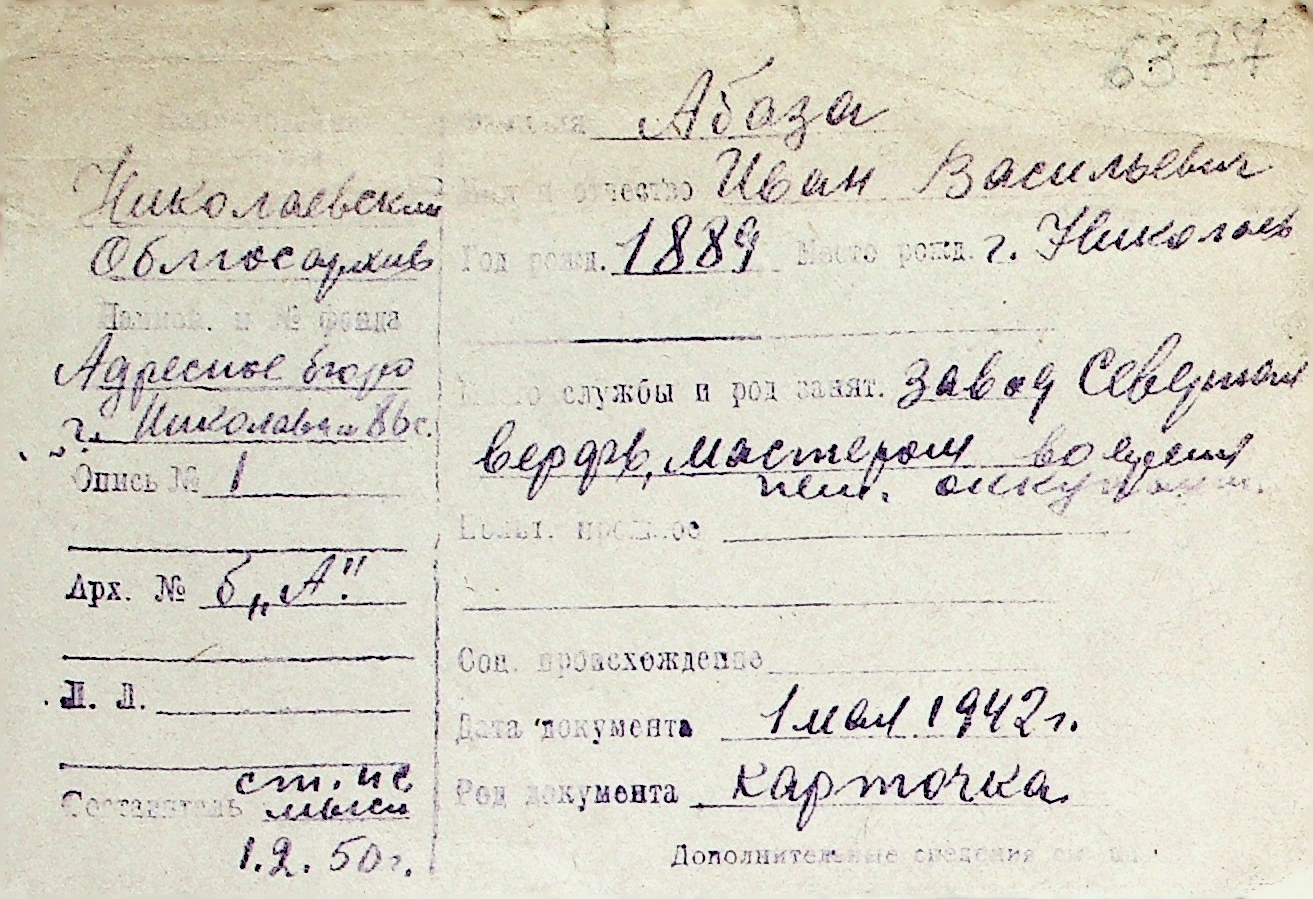 6377
Абаза
Имя и отчество Иван Васильевич
Николаевский
Облгосархив
Год рожд. 1889 Место рожд. г. Николаев
Наимен. и № фонда
Адресное бюро
г. Николаева
Место службы и род занят. завод Северная
верфь, мастером во время
нем. оккупации.
Опись № 1
Полит. прошлое
Арх. № б „А"
Соц. происхождение
Л. Л.
Дата документа 1 мая 1942 г.
Род документа карточка.
Составитель ст. н с
1.2.50 г.
Дополнительные сведения см. на